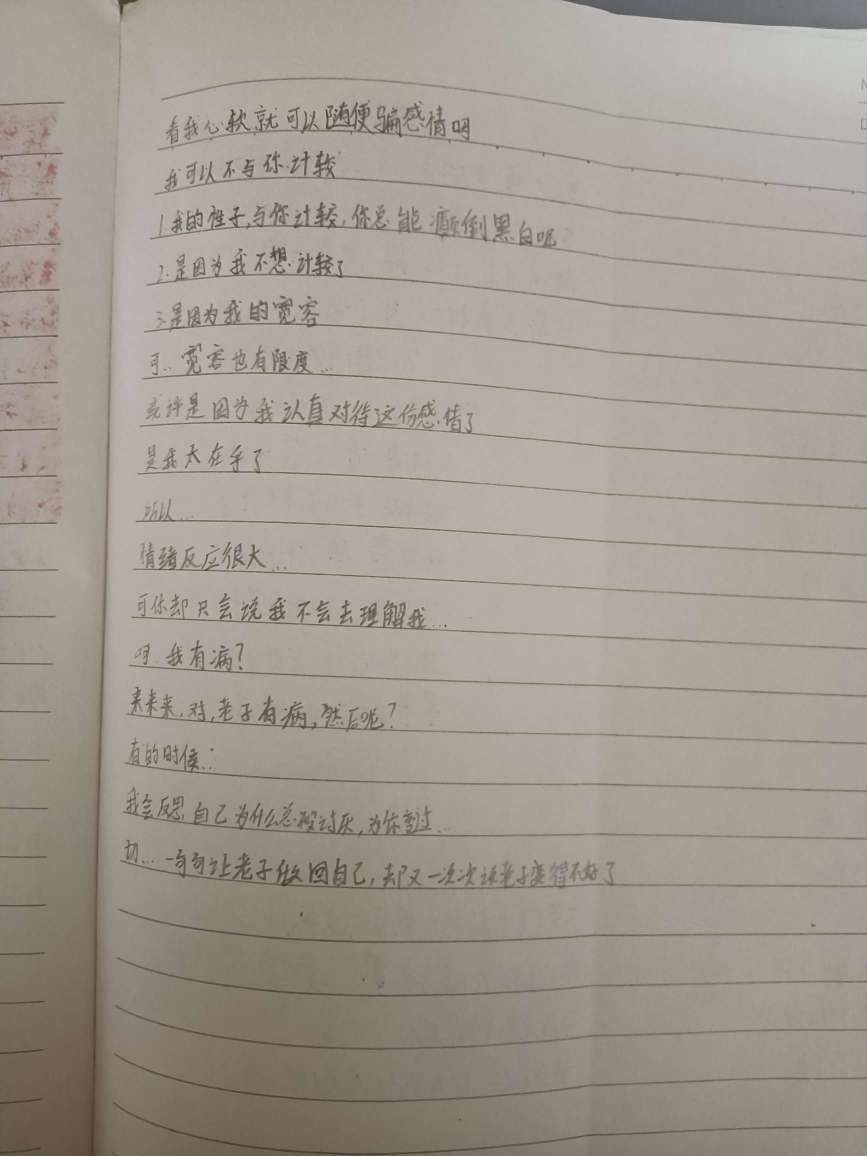 看我心软就可以随便骗感情吗
我可以不与你计较
1.我的性子,与你计较,你总能癫倒黑白呢
2.是因为我不想计较了
3.是因为我的宽容
可..宽容也有限度...
或许是因为我认真对待这份感情了
是我太在乎了
所以...
情绪反应很大...
可你却只会说我不会去理解我...
呵 我有病?
来来来,对,老子有病,然后呢?
有的时候...
我会反思自己为什么总被讨厌,为你变过...
切...一句句让老子做回自己,却又一次次说老子变得不好了